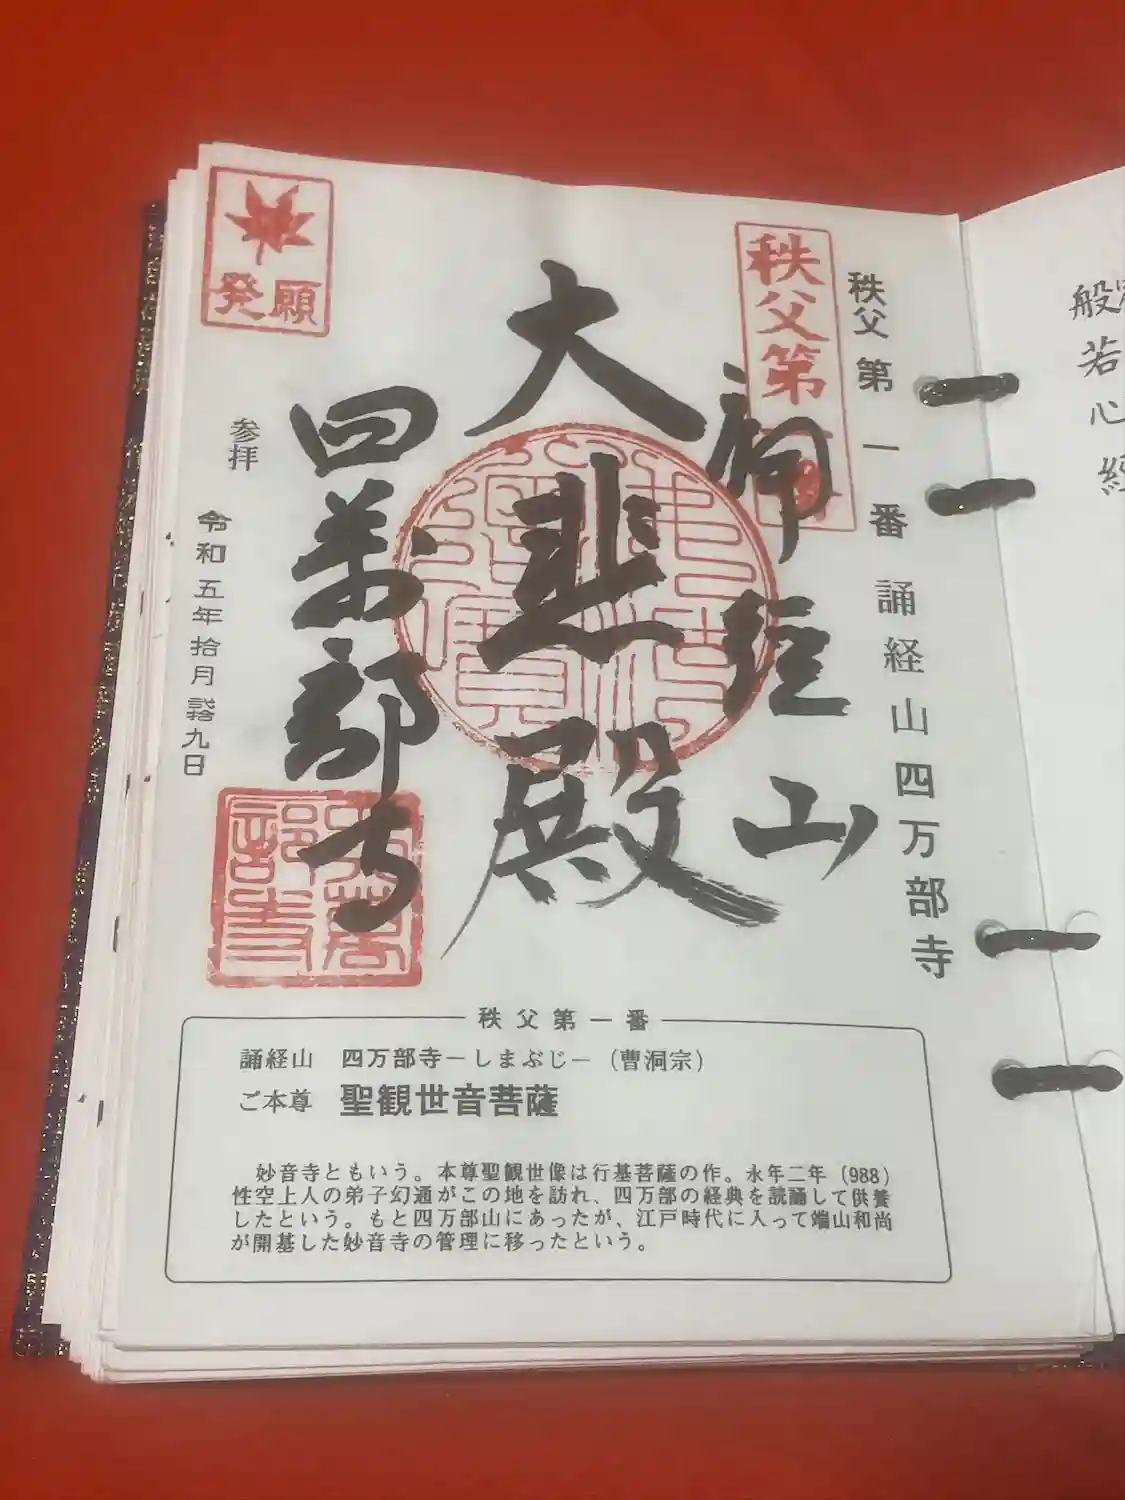 秩父第一番 誦経山四万部寺
秩父第一番
誦経山
大悲殿
四萬部寺
発願
参拝
令和五年拾月弐拾九日
四萬部寺
秩父第一番
誦経山 四万部寺ーしまぶじー（曹洞宗）
ご本尊 聖観世音菩薩
妙音寺ともいう。本尊聖観世像は行基菩薩の作。永年二年（988）
性空上人の弟子幻通がこの地を訪れ、四万部の経典を読誦して供養
したという。もと四万部山にあったが、江戸時代に入って端山和尚
が開基した妙音寺の管理に移ったという。
般若心経